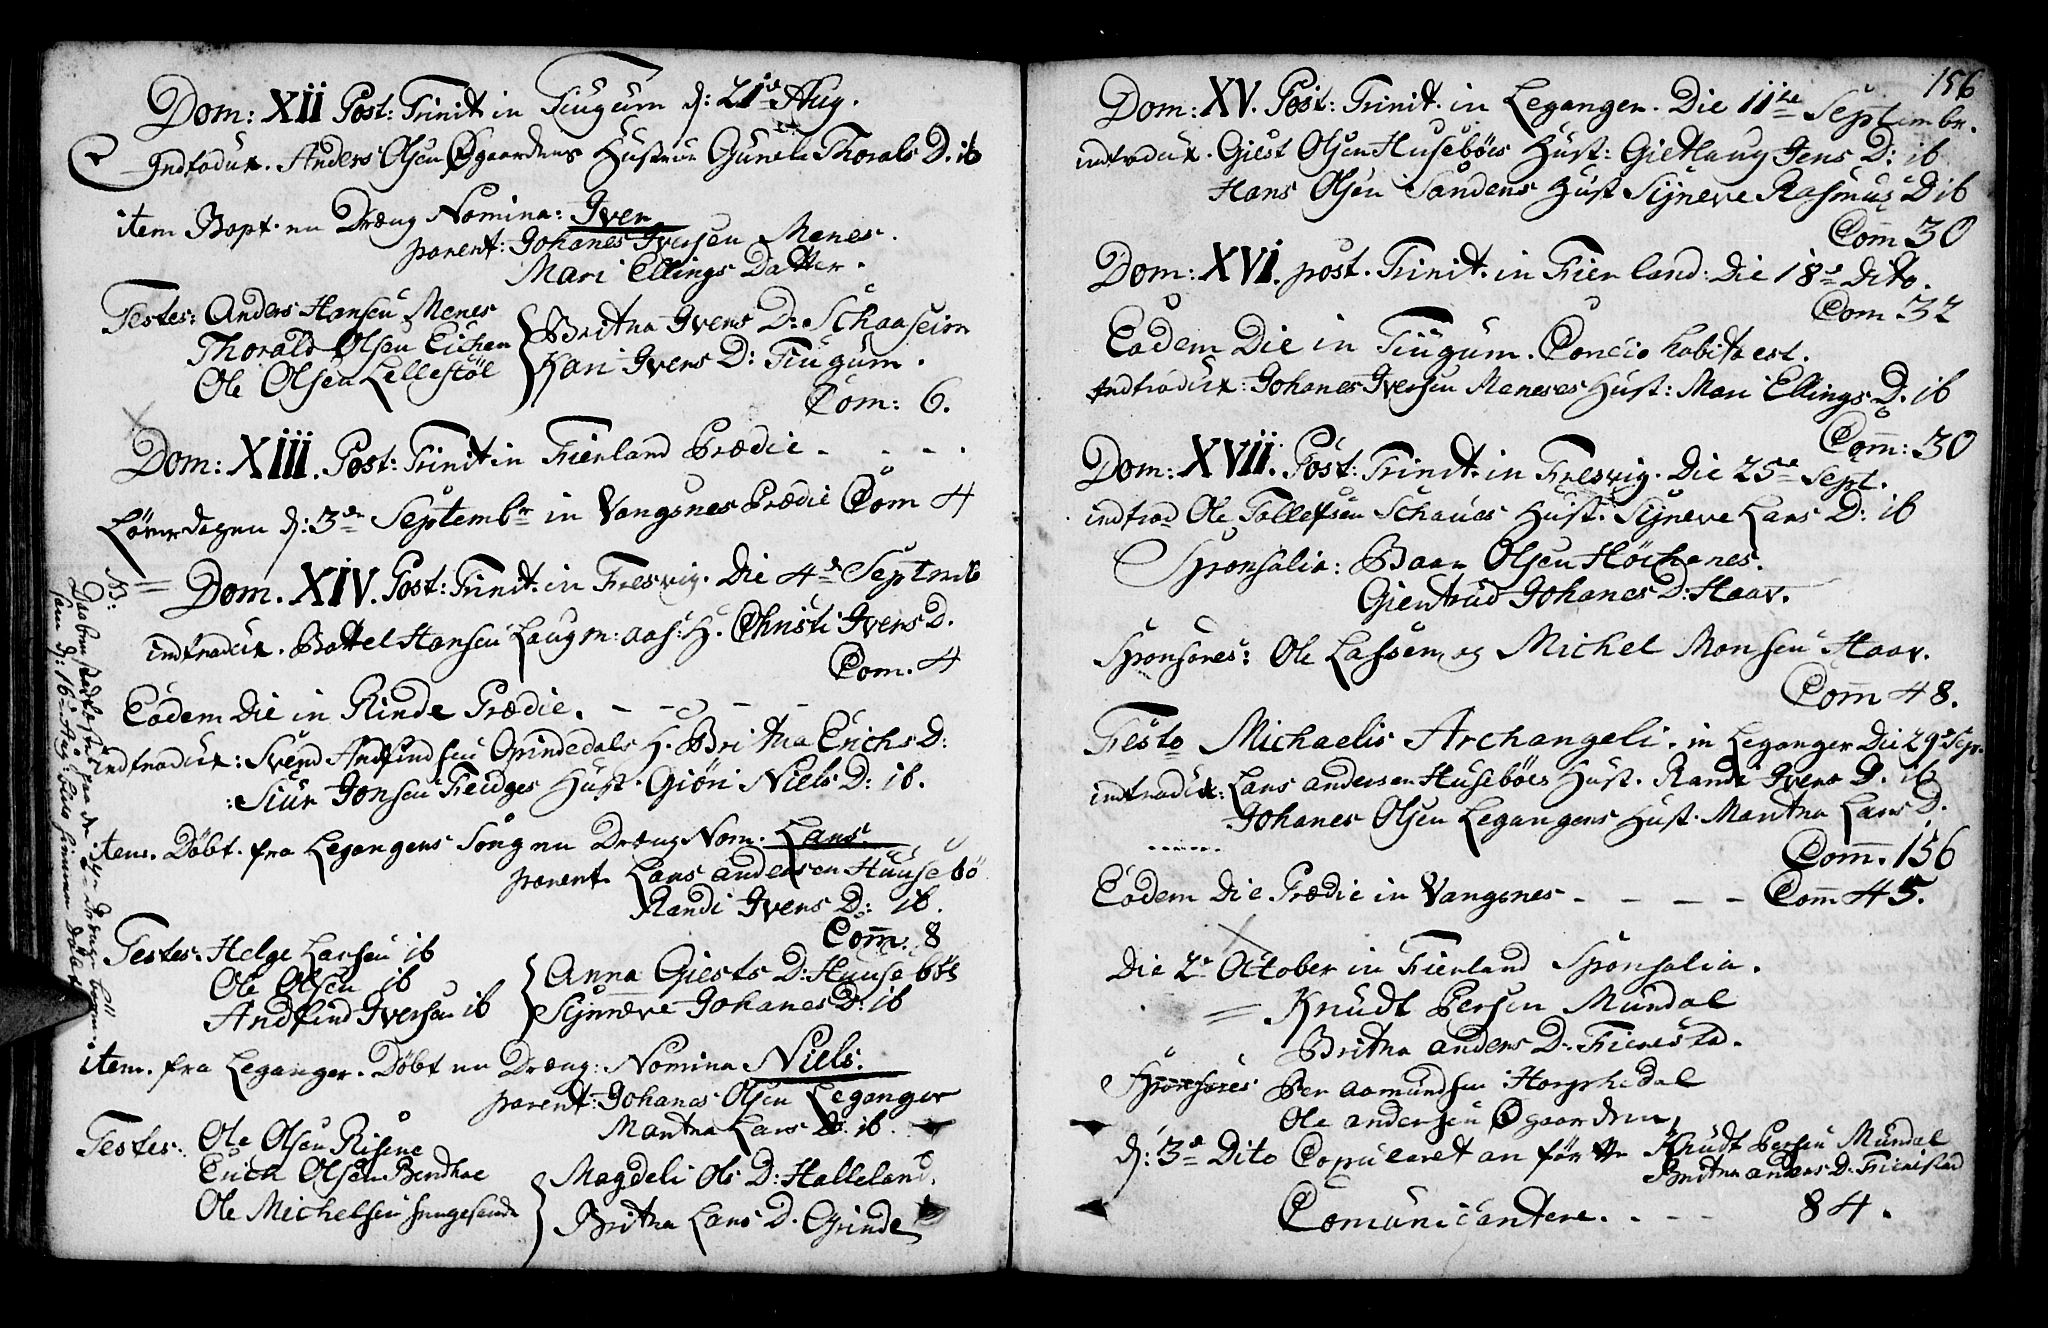 Dom: XII Post: Trinit in Tiugum d: 21de Aug.
Indtrodux. Anders Olsen Øgaardens Hustrue Gunele Thorals D. ib
item Bapt. nu Dræng Nomina: Iver
parent: Johanes Iversen Menes.
Mari Ellings Datter.
Testes: Anders Hansen Menes
Thorald Olsen Eichen
Ole Olsen Lellestöl
Britha Ivers D: Schaaseim
Kari Ivers D: Tiugum.
Com: 6.
Dom: XIII. Post: Trinit in Fierland Prædic - - - .
Löverdagen d: 3de Septembr in Vangsnes Prædic Com 4
Dom. XIV. Post: Trinit. in Fresvig. Die 4de Septemb
indtrodux. Bottel Hansen Laugm: aas: H. Christi Ivers D.
Com. 4
Eodem Die in Rinde Prædic. - - - -
indtrodux: Svend Andfindsen Grindedals H. Britha Erichs D:
: Siur Jonsen Feidges Hust. Giöri Niels D: ib.
item. Döbt. fra Legangers Sogn nu Dræng Nom. Lars.
parent. Lars andersen Huusebö
Randi Ivers D: ib.
Com: 8
Testes. Helge Larsen ib
Ole Olsen ib
Andfind Iversen ib
Anna Giests D: Huusebös
Synneve Johanes D. ib
item. fra Leganger. Döbt nu Dræng: Nomina Niels.
parent: Johanes Olsen Leganger
Martha Lars D. ib.
Testes. Ole Olsen Risene
Erich Olsen
Ole Michelsen
Magdeli Ols D: Halleland.
Britha Lars D. Grinde
NB:
d: 16 Aug:
156
Dom: XV. Post: Trinit. in Leganger. Die 11te Septembr.
indtrodux. Giest Olsen Huseböes Hust: Giethaug Jens D: ib
Hans Olsen Sandens Hust Synneve Rasmus D ib
Com 30
Dom: XVI. post. Trinit. in Fierland: Die 18de Dito.
Com 32
Eodem Die in Tiugum. Concio habita est.
Indtrodux: Johanes Iversen Meneses Hust: Mari Ellings D. ib
Com: 30
Dom: XVII. Post: Trinit: in Fresvig. Die 25de Sept.
indtrod Ole Tollefsen Schaues Hust. Synneve Lars D: ib
Sponsalia: Baar Olsen Höchenes.
Giertrud Johanes D: Haav.
Sponsores: Ole Lassen og Michel Monsen Haav.
Com 48.
Festo Michaelis Archangeli. in Leganger Die 29de Sepr.
indtrodux: Lars andersen Huseböes Hust. Randi Ivers D. ib
Johanes Olsen Legangers Hust. Martha Lars D.
Com. 156
Eodem Die Prædic in Vangsnes - - - - Com 45.
Die 2de October in Fierland Sponsalia.
Knudt Persen Mundal
Britha anders D. Fierestad.
Sponsores Per aamundsen Horpedal
Ole andersen Øgaarden,
d: 3de Dito Copuleret an förte Knudt Persen Mundal
Britha anders D. Fierestad
Comunicantere. - - - 84.